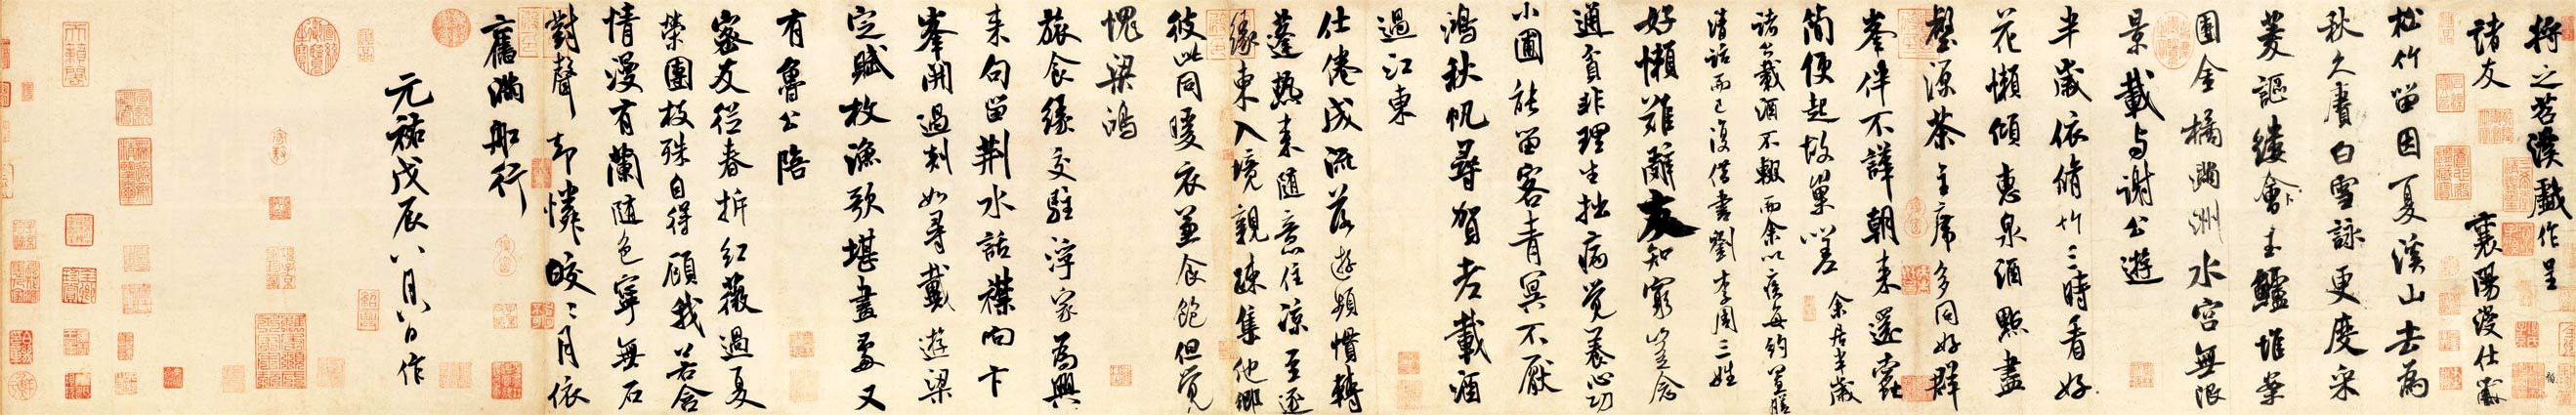 將之苕溪戲作呈
諸友 襄陽漫仕黻
松竹留因夏溪山去為
秋久賡白雪詠更度采
菱謳縷會卜玉鱸堆案
團金橘滿洲水宮無限
景載与謝公遊
半歲依修竹三時看好
花懶傾惠泉酒點盡
壑源茶主席多同好群
峯伴不譁朝來還蠹
簡便起故巢嗟 余居半歲
諸公載酒不輟而余以疾每約置膳
清話而已復借書劉李周三姓
好懶難辭友知窮豈念
通貧非理生拙病覺養心功
小圃能留客青冥不厭
鴻秋帆尋賀老載酒
過江東
仕倦成流落遊頻慣轉
蓬熱來隨意住凉至逐
緣東入境親疎集他鄉
彼此同暖衣兼食飽但覺
愧梁鴻
旅食緣交駐浮家為興
來句留荆水話襟向卞
峯開過剡如尋戴遊梁
定賦枚漁歌堪畫處又
有魯公陪
密友從春拆紅薇過夏
榮團枝殊自得顧我若含
情漫有蘭隨色寧無石
對聲却憐皎〻月依
舊滿船行
元祐戊辰八月八日作